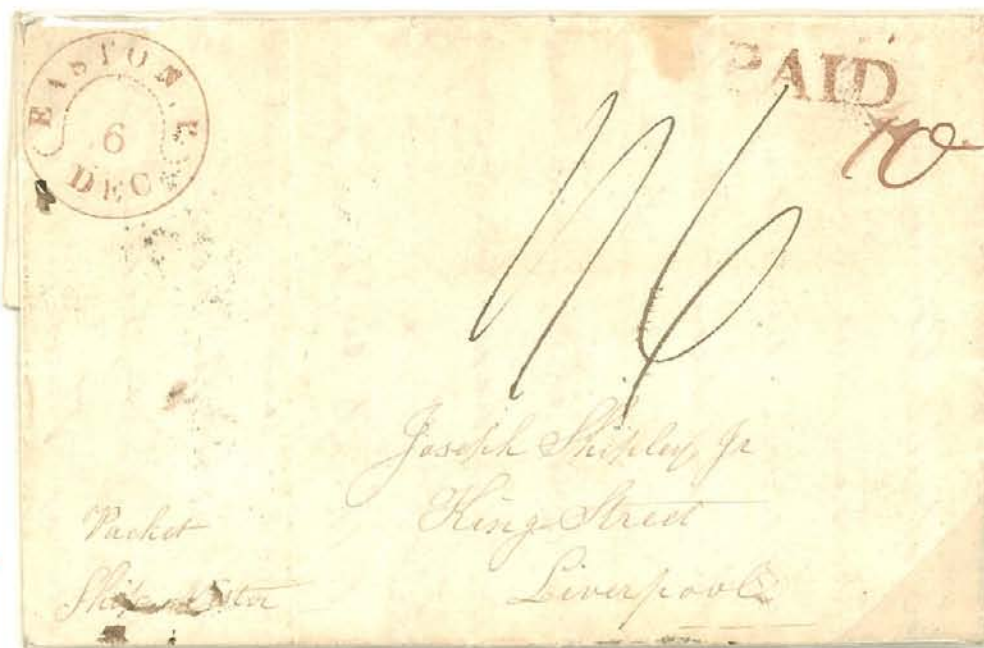 EASTON
6
DEC
PAID
10
Joseph Shipley Jr
King Street
Liverpool
Packet
Ship